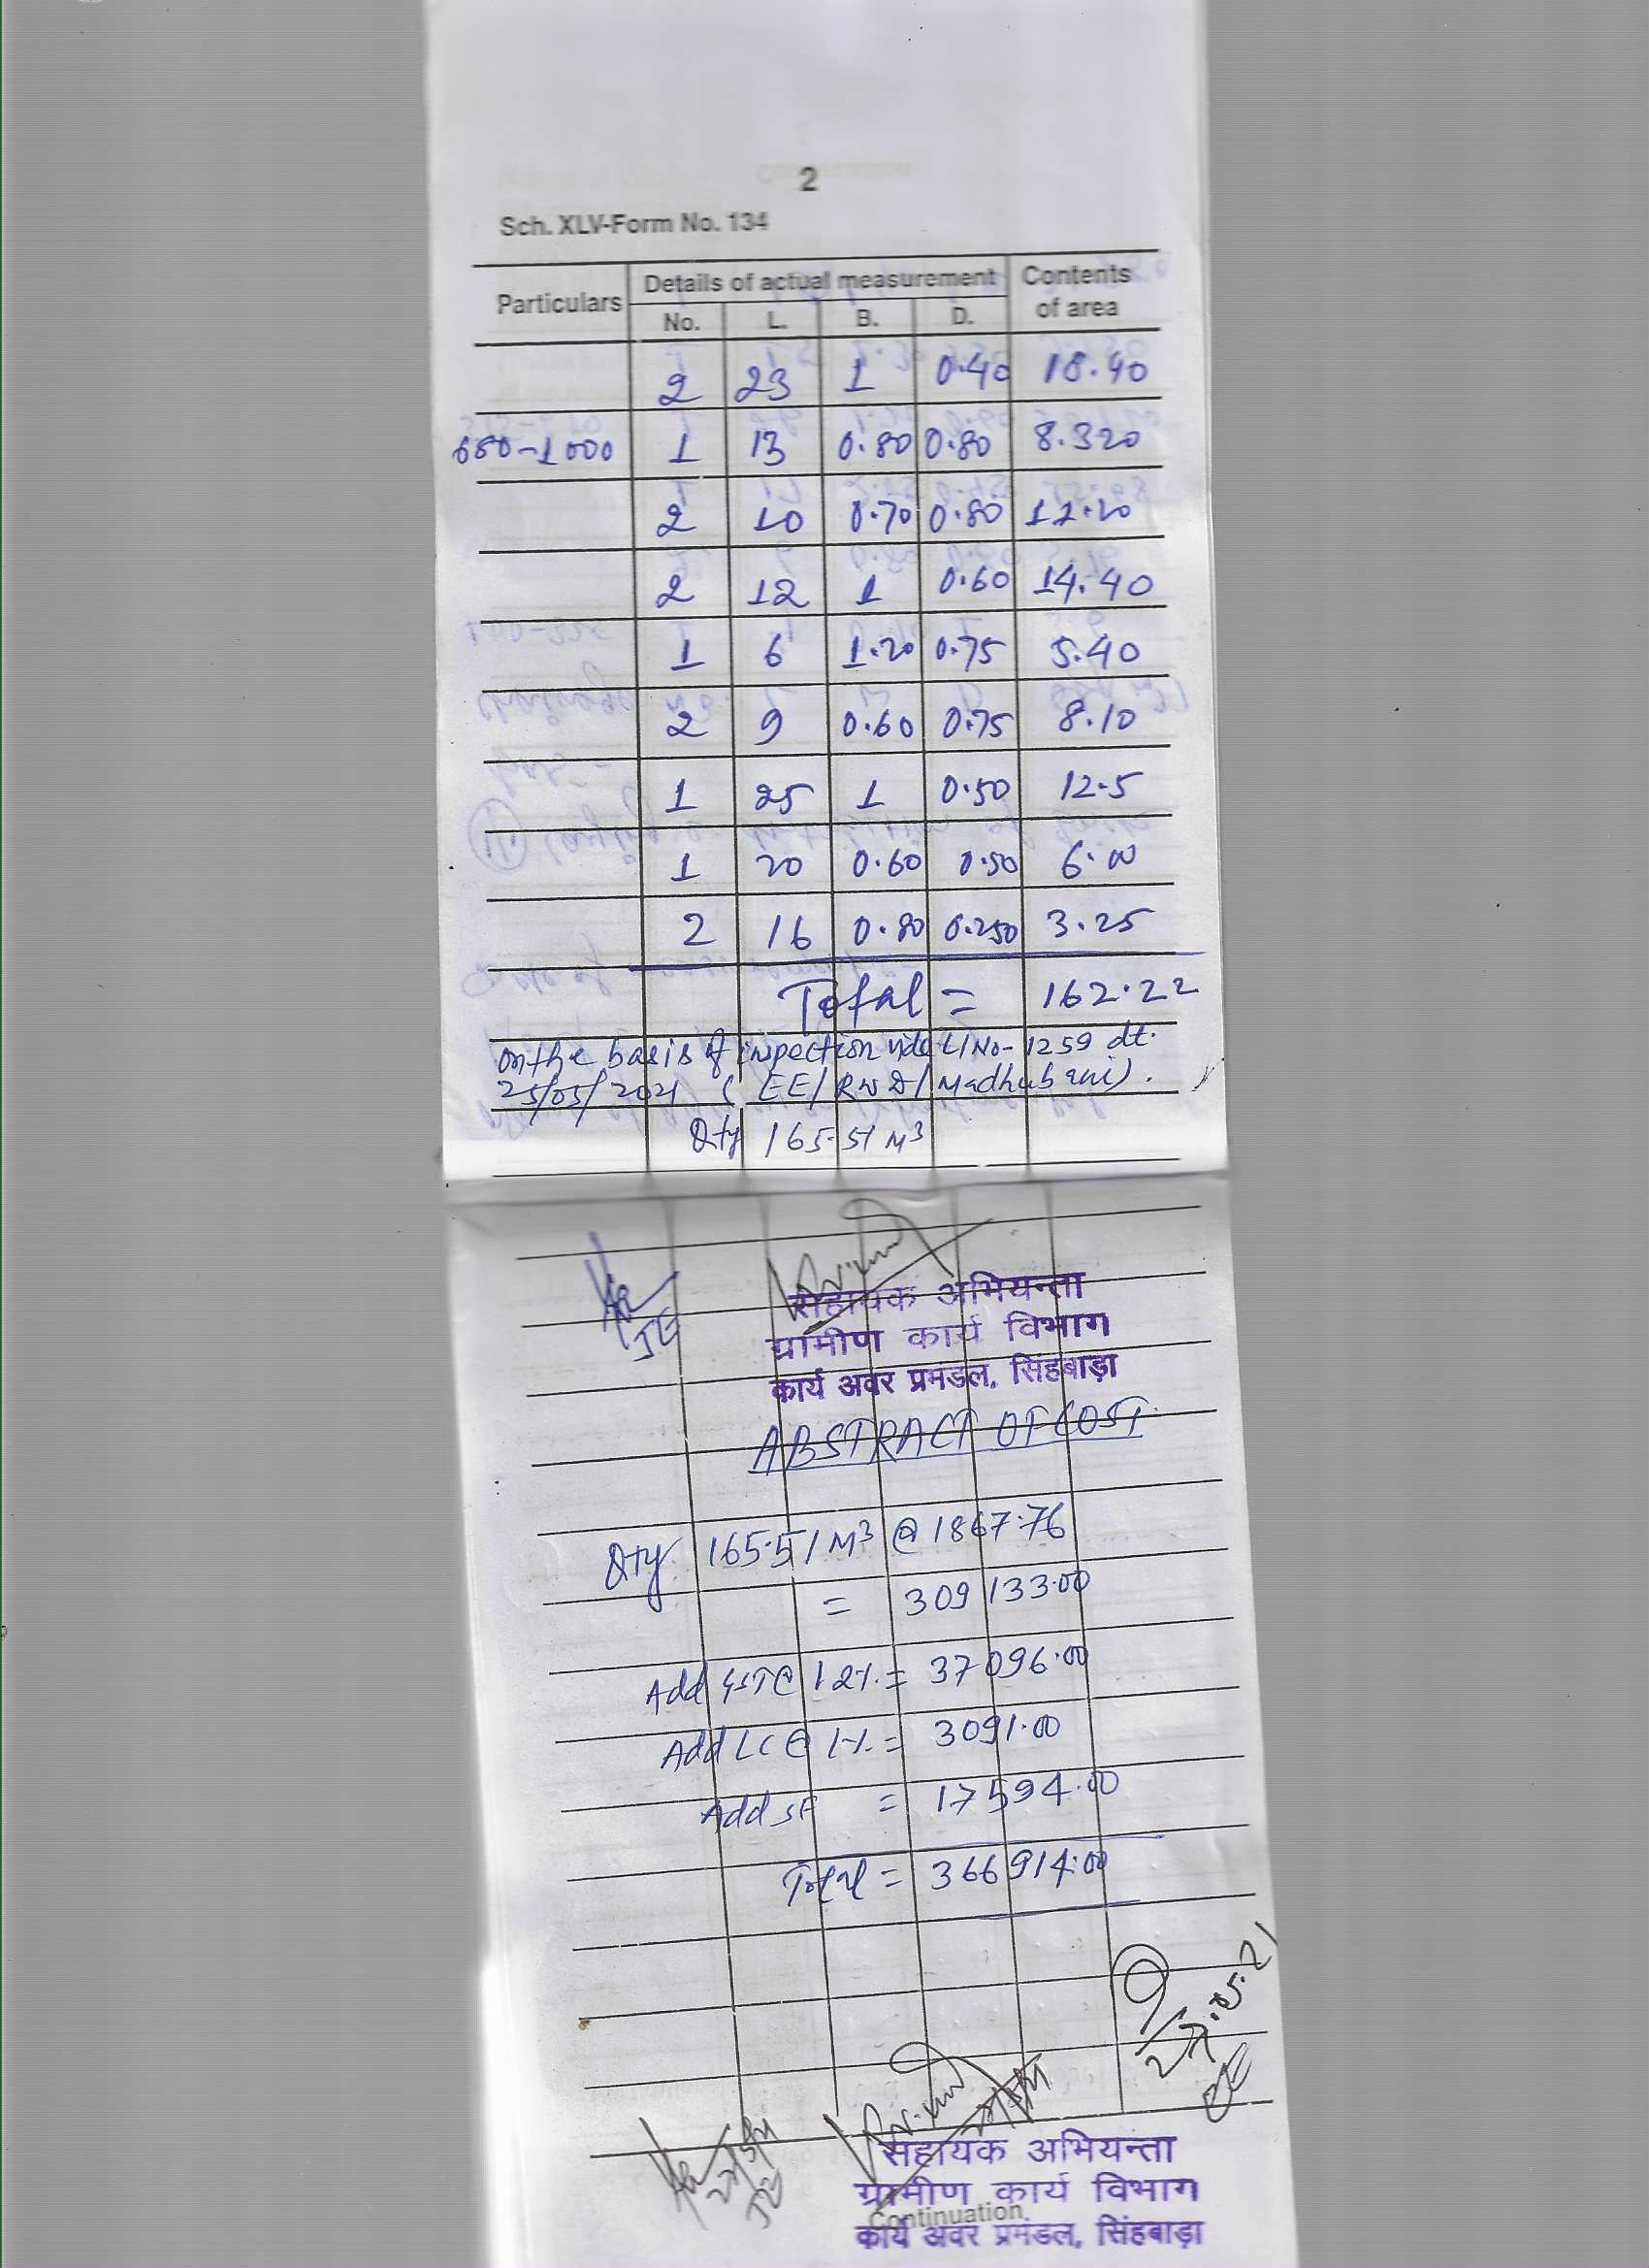 2
Sch. XLV-Form No. 134
Particulars Details of actual measurement Contents of area
No. L. B. D.
2 23 1 0.40 18.40
680-1000 1 13 0.80 0.80 8.320
2 10 0.70 0.80 11.20
2 12 1 0.60 14.40
1 6 1.20 0.75 5.40
2 9 0.60 0.75 8.10
1 25 1 0.50 12.5
1 20 0.60 0.50 6.00
2 16 0.80 0.250 3.25
Total = 162.22
on the basis of inspection vide L/No-1259 dt.
25/05/2021 (EE/RWD/Madhubani).
Qty 165.51 M³
JE
सहायक अभियन्ता
ग्रामीण कार्य विभाग
कार्य अवर प्रमंडल, सिंहबाड़ा
ABSTRACT OF COST
Qty 165.51 M³ @ 1867.76
= 309133.00
Add GST@ 12%.= 37096.00
Add LC@ 1%.= 3091.00
Add SF = 17594.00
Total = 366914.00
EE
JE
सहायक अभियन्ता
ग्रामीण कार्य विभाग
Continuation
कार्य अवर प्रमंडल, सिंहबाड़ा